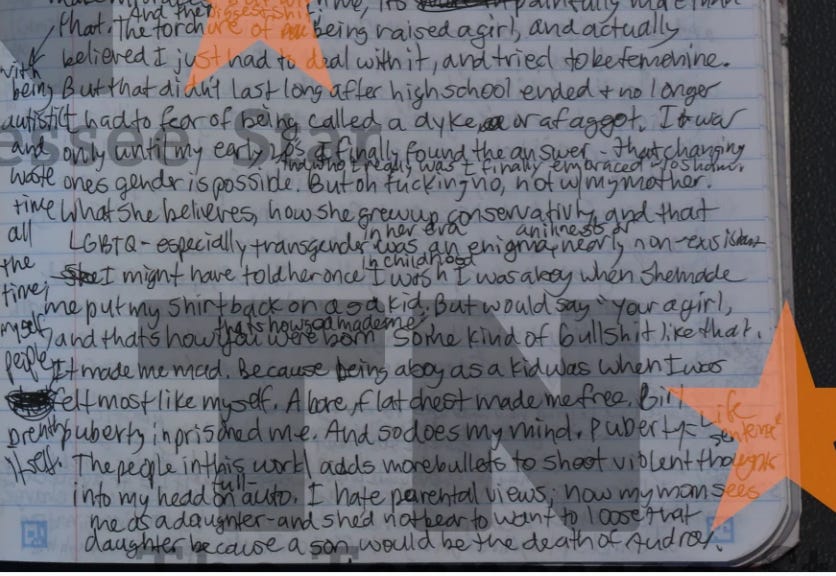 time, its painfully made than
And the biggest shit
that. The torchure of being raised a girl, and actually
believed I just had to deal with it, and tried to be femenine.
But that didn't last long after high school ended + no longer
had to fear of being called a dyke or a faggot. It was
only until my early 20s I finally found the answer - that changing
who I really was I finally embraced
ones gender is possible. But oh fucking no, not w/ my mother.
What she believes, how she grew up conservativly, and that
in her era an illness or
LGBTQ - especially transgender was an enigma, nearly non-existant
in childhood
I might have told her once I wish I was a boy when she made
me put my shirt back on as a kid. But would say "your a girl,
thats how god made me"
and thats how you were born some kind of bullshit like that.
It made me mad. Because being a boy as a kid was when I was
felt most like myself. A bare, flat chest made me free. Girl
puberty inprisoned me. And so does my mind. Puberty = life
sentence
The people in this work adds more bullets to shoot violent thoughts
full-
into my head on auto. I hate parental views; how my mom sees
me as a daughter - and she'd not bear to want to loose that
daughter because a son would be the death of Audrey.
with
being
autistic
and
waste
time
all
the
time;
myself
people
itself.
essee Star
TN